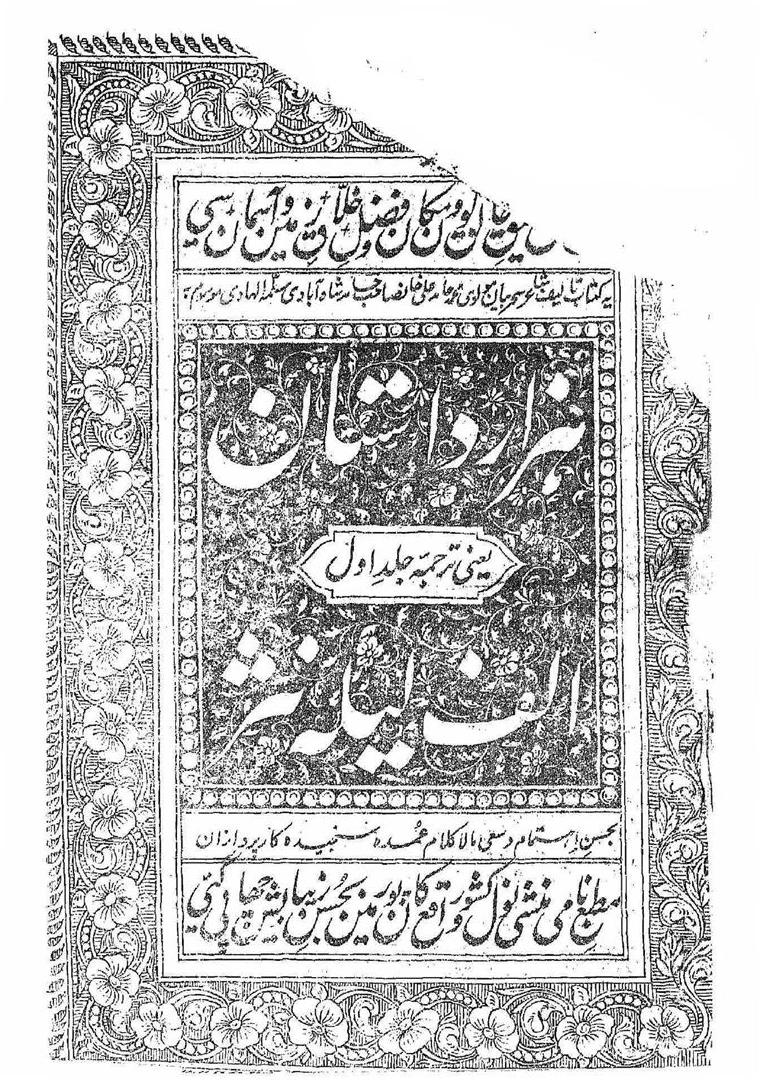 کون و مکان و فضل خلاق زمین و آسمان سے
یہ کتاب تالیف شاعر سحر بیان مولوی محمد حامد علی خان صاحب حامد شاہ آبادی سلمہ الہادی موسوم بہ
ہزار داستان
یعنی ترجمہ جلد اول
الف لیلہ نثر
بحسن اہتمام و سعی مالاکلام عمدہ سنجیدہ کارپردازان
مطبع نامی منشی نول کشور واقع کانپور مین بحسن زیبایش چھاپی گئی